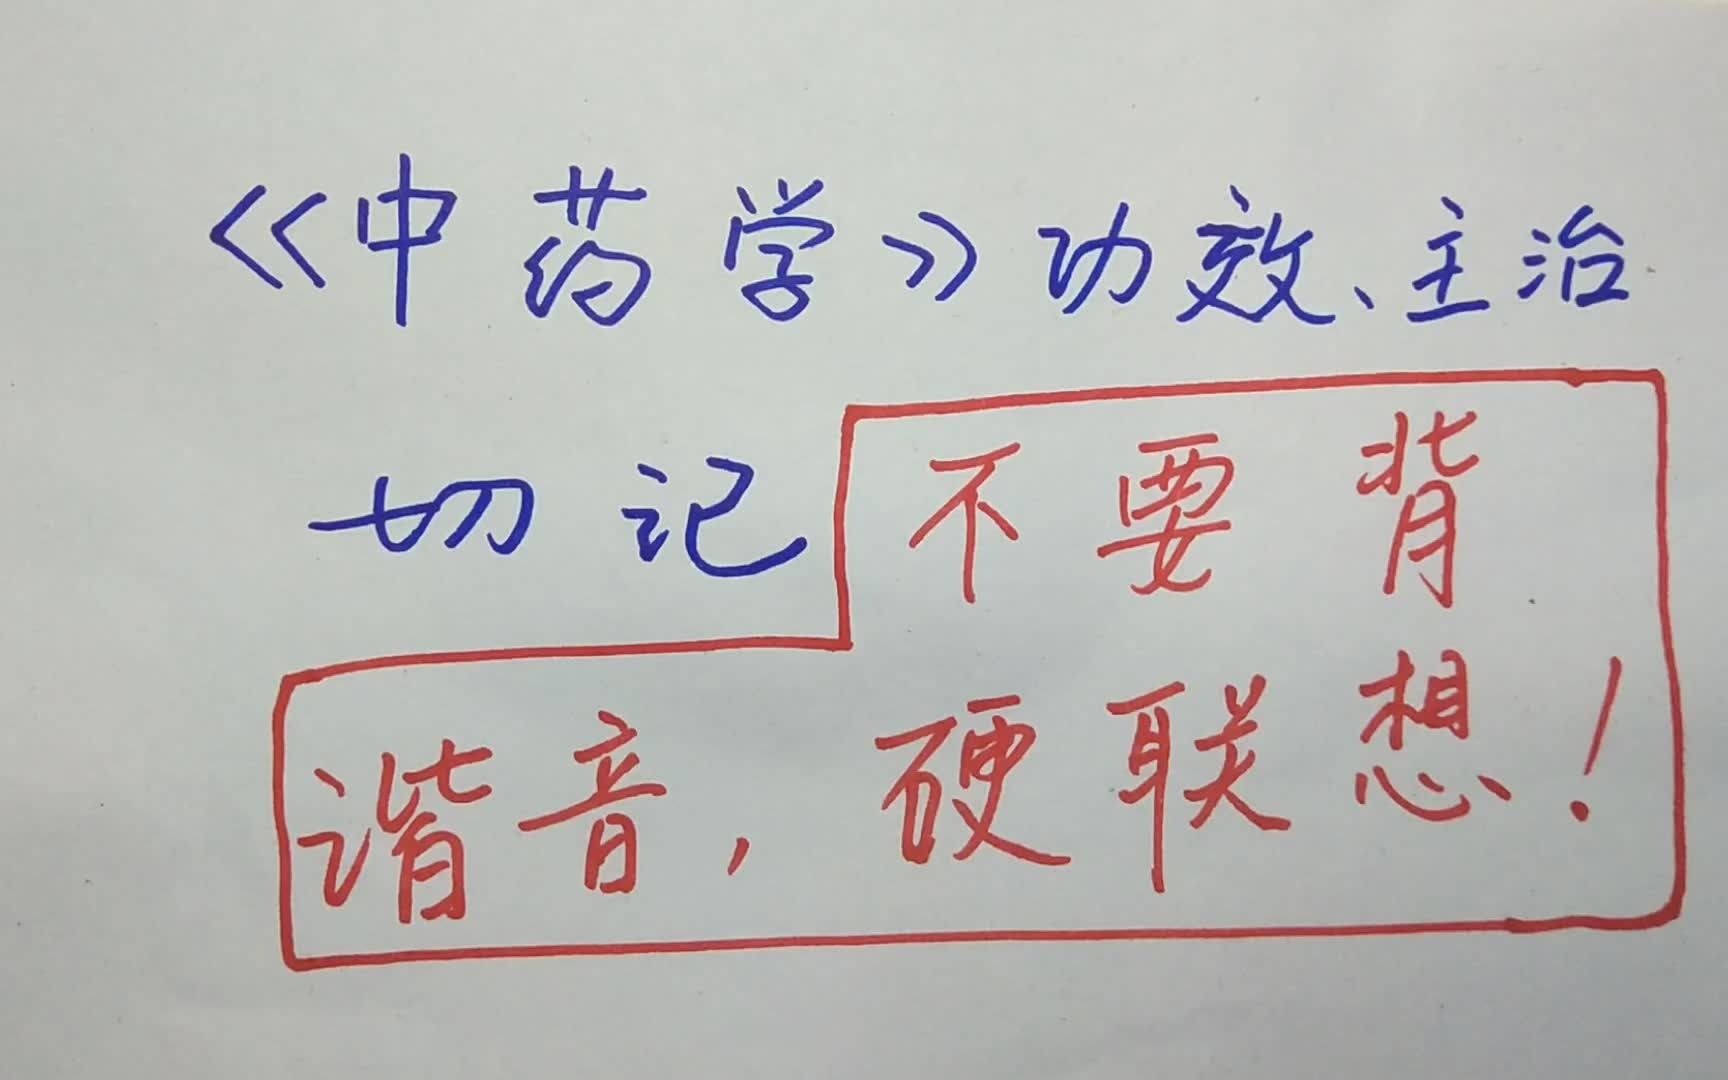 《中药学》功效、主治
切记不要背
谐音,硬联想!